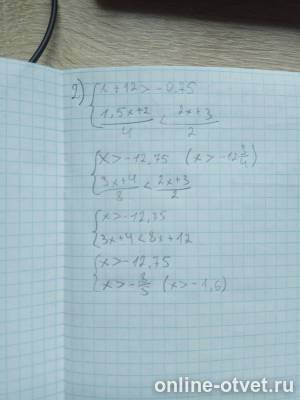 2) { x + 12 > -0,75
{ (1,5x+2)/4 < (2x+3)/2
{ x > -12,75 (x > -12 3/4)
{ (3x+4)/8 < (2x+3)/2
{ x > -12,75
{ 3x+4 < 8x+12
{ x > -12,75
{ x > -8/5 (x > -1,6)
online-otvet.ru